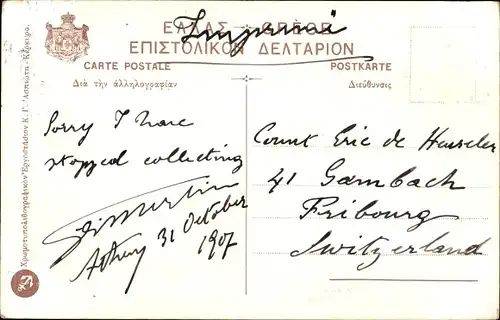 Imprimé
ΕΛΛΑΣ - GRÈCE
ΕΠΙΣΤΟΛΙΚΟΝ ΔΕΛΤΑΡΙΟΝ
CARTE POSTALE
POSTKARTE
Διὰ τὴν ἀλληλογραφίαν
Διεύθυνσις
Sorry I have
stopped collecting
Athens 31 October
1907
Count Eric de
41 Gambach
Fribourg
Switzerland
Χρωμοτυπολιθογραφικὸν Ἐργοστάσιον Κ. Γ. Ἀσπιώτη - Κέρκυρα.